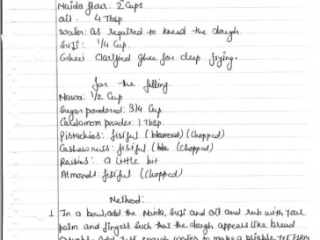 Maida flour: 2 Cups
Oil: 4 Tbsp
Water: As required to knead the dough
Suji: 1/4 Cup
Ghee: Clarified ghee for deep frying.
for the filling
Mawa: 1/2 Cup
Sugar powdered: 3/4 Cup
Cardamom powder: 1 Tbsp
Pistachios: fistful (Chopped)
Cashewnuts: fistful (Chopped)
Raisins: a little bit
Almonds: fistful (Chopped)
Method:
1 In a bowl, add the Maida, Suji and oil and rub with your
palm and fingers such that the dough appears like bread
Crumbs. Add just enough water to make a pliable yet firm